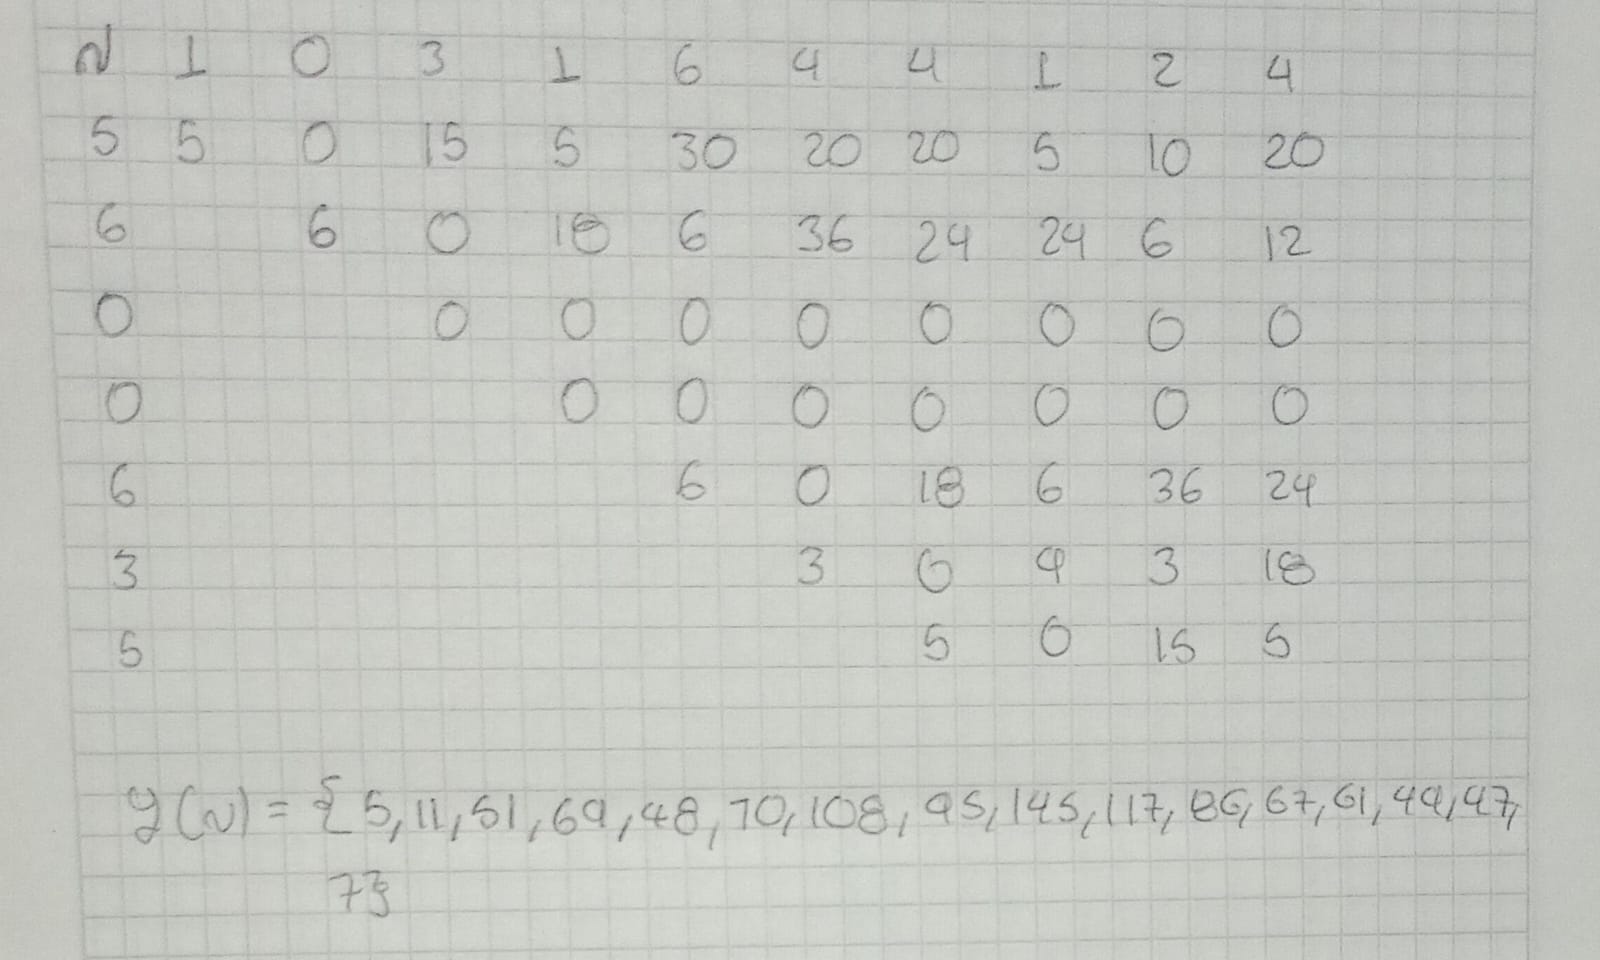 N 1 0 3 1 6 4 4 1 2 4
5 5 0 15 5 30 20 20 5 10 20
6 6 0 18 6 36 24 24 6 12
0 0 0 0 0 0 0 0 0
0 0 0 0 0 0 0 0
6 6 0 18 6 36 24
3 3 0 9 3 18
5 5 0 15 5
y(n) = {5, 11, 51, 69, 48, 70, 108, 95, 145, 117, 86, 67, 61, 49, 47,
7}